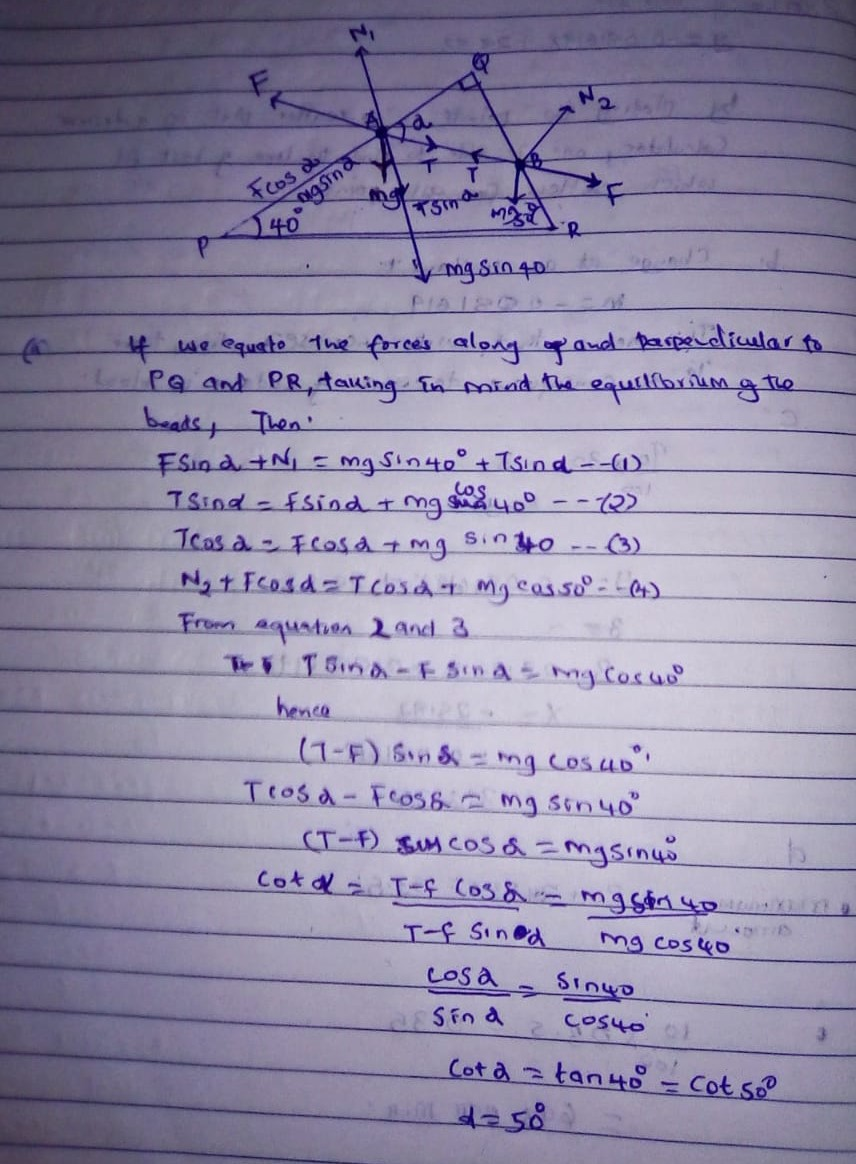 N₁
Q
F
A
α
N₂
B
T
T
F
Fcosα
mgsinα
mg
Tsinα
mg
50°
40°
P
R
mgsin40
(a) If we equate the forces along of and perpendicular to
PQ and PR, taking in mind the equilibrium of the
beads, Then:
Fsinα + N₁ = mgsin40° + Tsinα --(1)
Tsinα = Fsinα + mg cos 40° ---(2)
Tcosα = Fcosα + mg sin 40 -- (3)
N₂ + Fcosα = Tcosα + mgcos50° -- (4)
From equation 2 and 3
Tsinα - F sinα = mgcos40°
hence
(T-F) Sinα = mg cos40°
Tcosα - Fcosα = mg sin40°
(T-F) cosα = mgsin40°
Cotα = T-f cosα = mgsin 40
T-f sinα mg cos40
cosα = sin40
sinα cos40
Cotα = tan40° = Cot50°
α = 50°